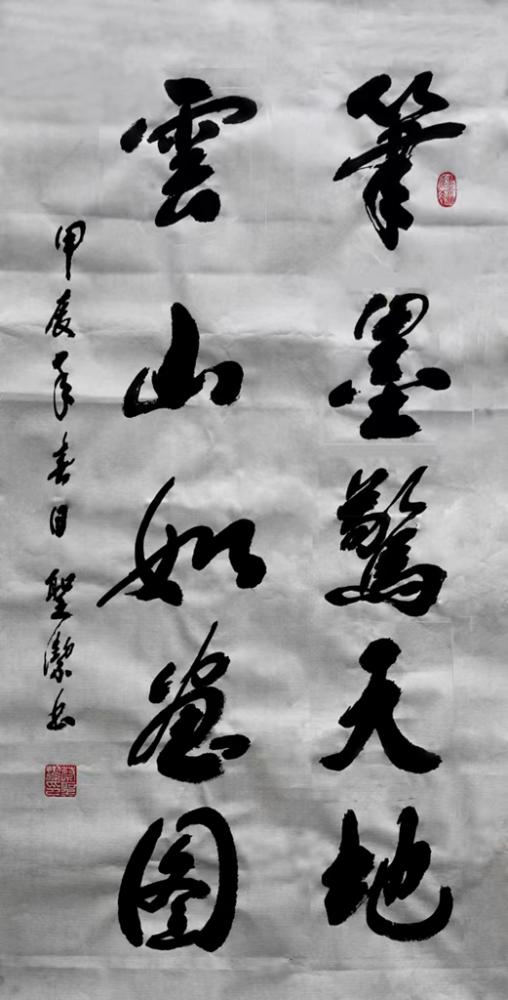 筆墨驚天地
雲山如畫圖
甲辰年春日 聖潔書